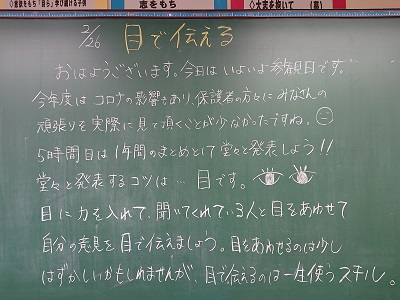 ◇意欲をもち「自ら」学び続ける子供
志をもち
◇大志を抱いて (高)
2/26 目で伝える
おはようございます。今日はいよいよ参観日です。
今年度はコロナの影響もあり、保護者の方々にみなさんの
頑張りを実際に見て頂くことが少なかったですね。
5時間目は1年間のまとめとして堂々と発表しよう!!
堂々と発表するコツは…目です。
目に力を入れて、聞いてくれている人と目をあわせて
自分の意見を目で伝えましょう。目をあわせるのは少し
はずかしいかもしれませんが、目で伝えるのは一生使うスキル。